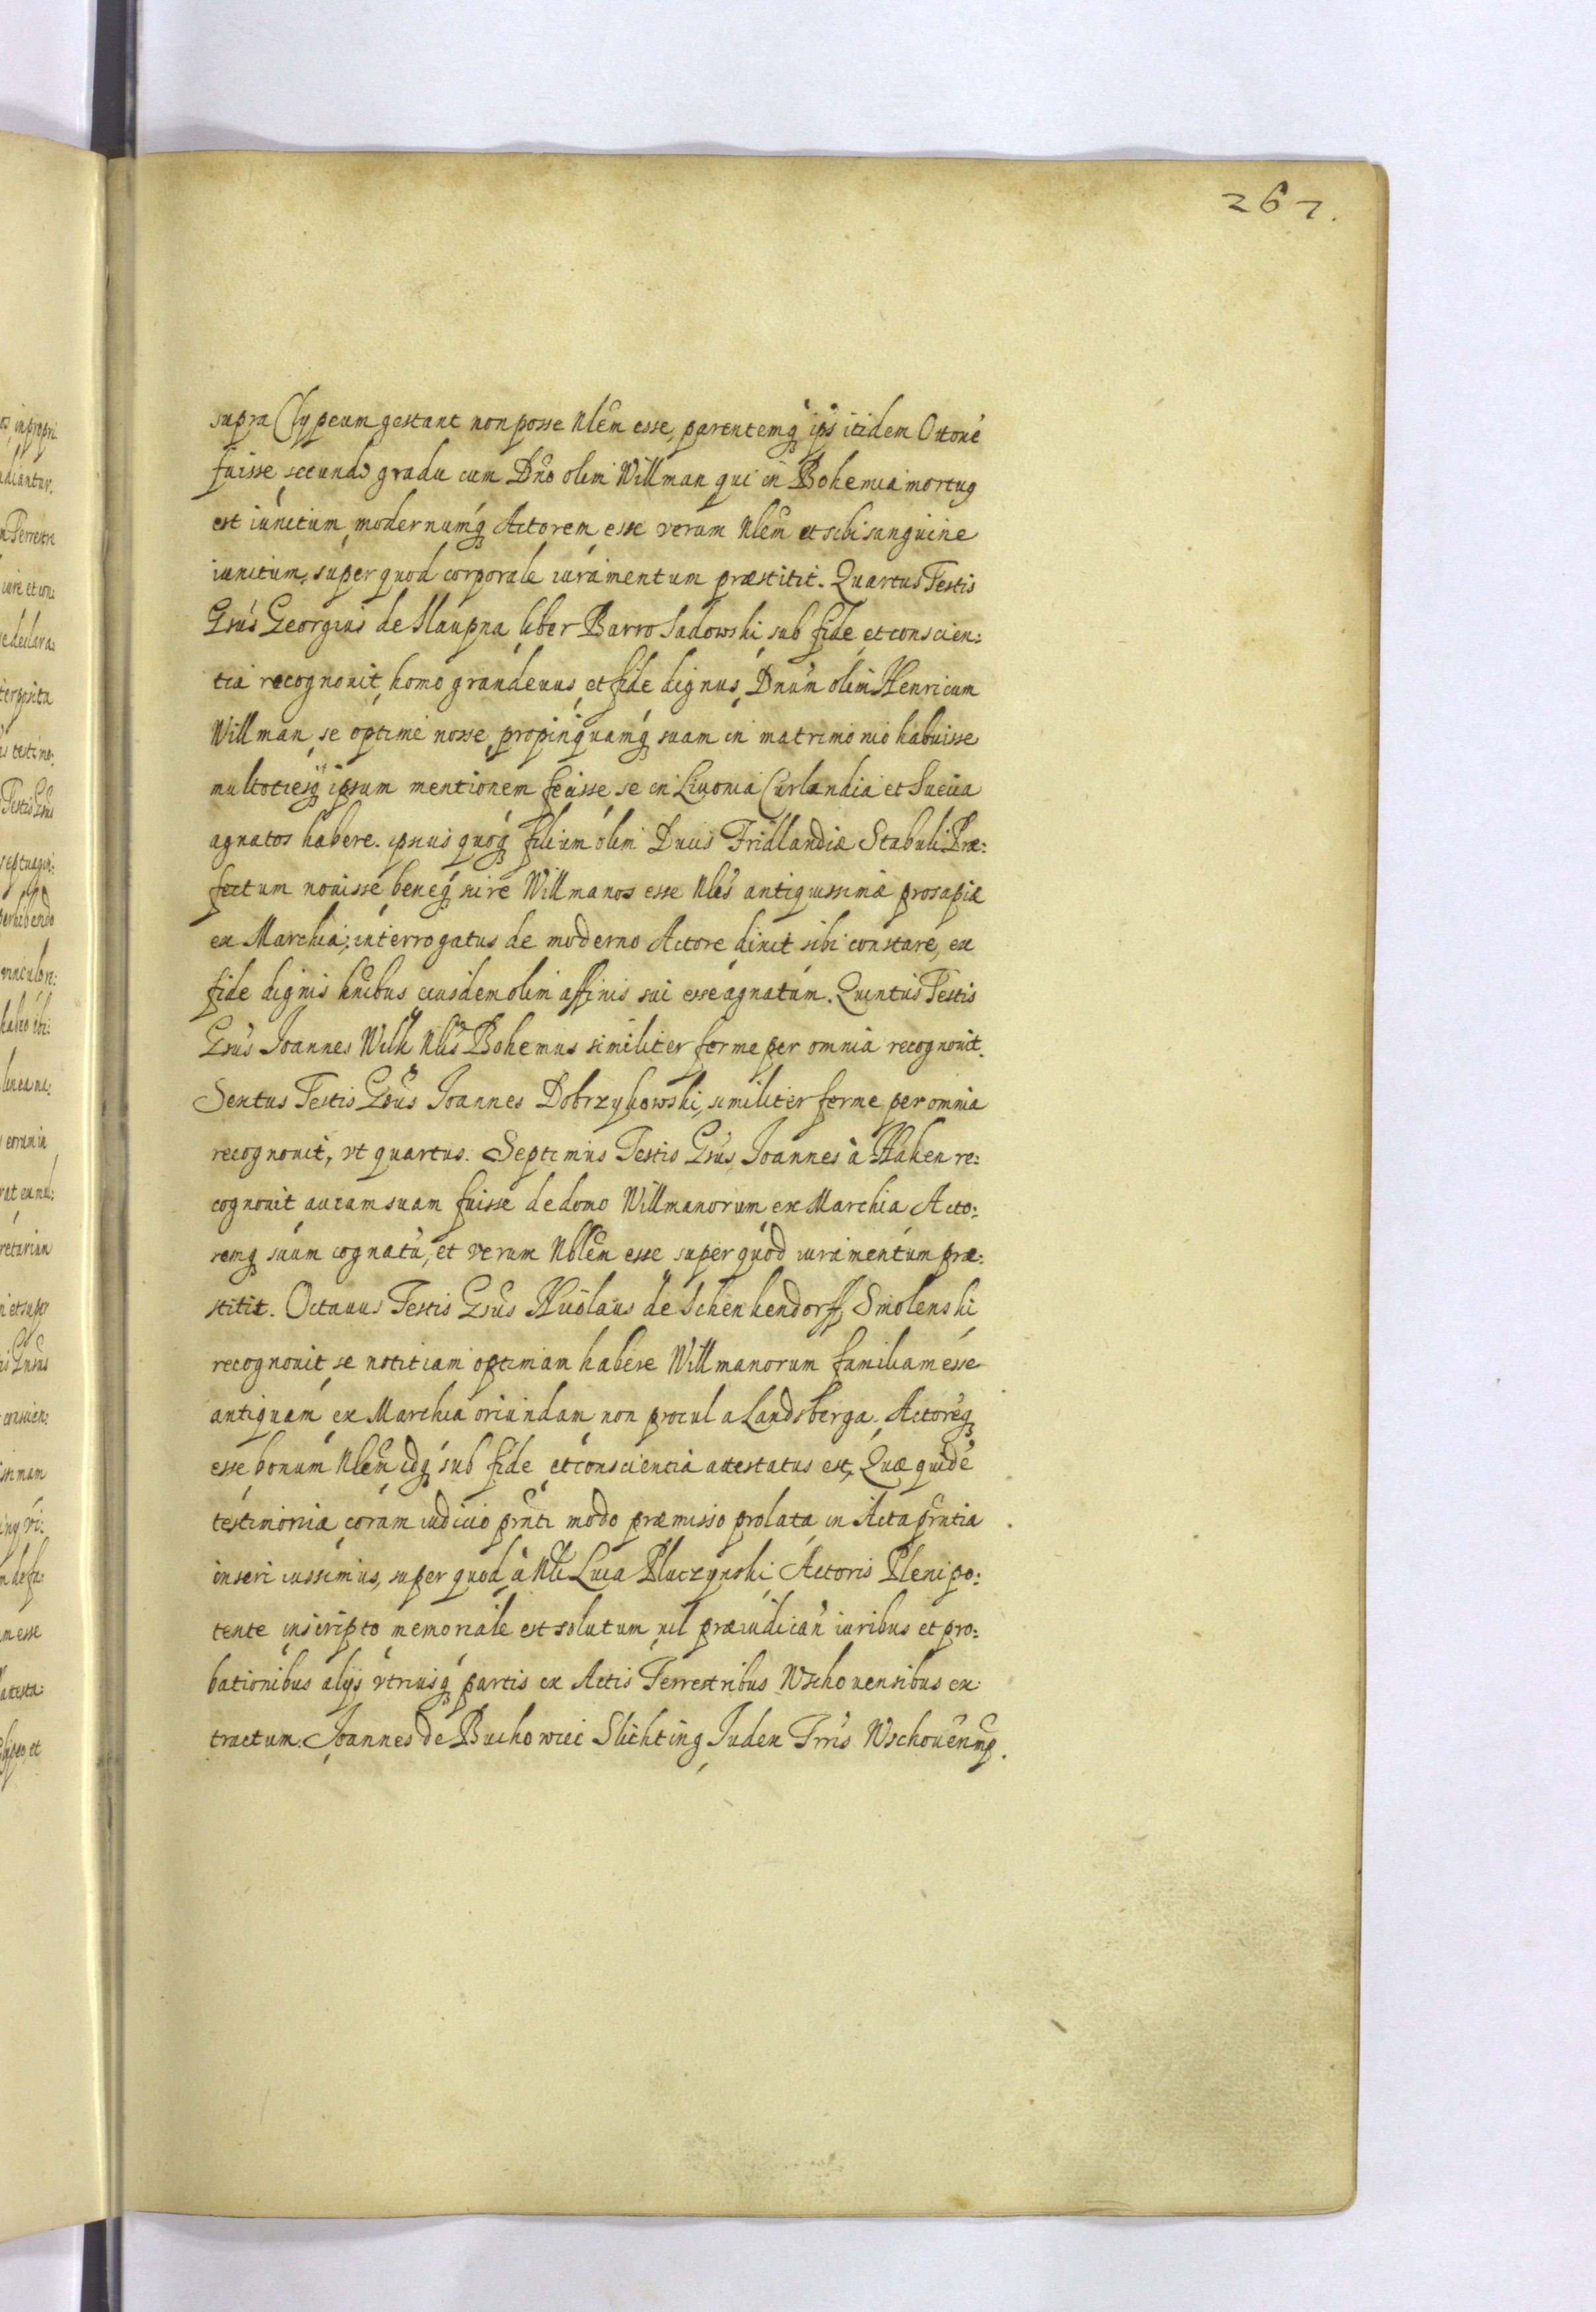 267.
supra Clypeum gestant non posse Nlẽm esse, parentemq; ips̃ itidem Ottonẽ
fuisse secundo gradu cum Dno olim Willman qui in Bohemia mortuq
est iunctum, modernumq; Actorem esse verum Nlẽm et sibi sanguine
iunctum, super quod corporale iuramentum præstitit. Quartus Testis
Gsus Georgius de Slaupna liber Barro Sadowski, sub fide et conscien:
tia recognouit, homo grandeuus et fide dignus, Dnum olim Henricum
Willman, se optime nosse, propinquamq; suam in matrimonio habuisse
multotiesq; ipsum mentionem fecisse se in Liuonia Curlandia et Sueua
agnatos habere. ipsius quoq; filium olim Ducis Fridlandiæ Stabuli Præ:
fectum nouisse, beneq; scire Willmanos esse Nles antiquissimæ prosapiæ
ex Marchia; interrogatus de moderno Actore dixit sibi constare, ex
fide dignis hñibus eiusdem olim affinis sui esse agnatum. Quintus Testis
Gsus Joannes Wilk Nlis Bohemus similiter ferme per omnia recognouit.
Sextus Testis Gsus Joannes Dobrzykowski, similiter ferme per omnia
recognouit, vt quartus. Septimus Testis Gsus Joannes à Haken re:
cognouit auiam suam fuisse de domo Willmanorum ex Marchia Acto:
remq; suum cognatũ, et verum Nblẽm esse super quod iuramentum præ:
stitit. Octauus Testis Gsus Nicolaus de Schenkendorff Smolenski
recognouit, se notitiam optimam habere Willmanorum familiam esse
antiquam ex Marchia oriundam non procul a Landsberga. Actorẽq;
esse bonum Nlẽm idq; sub fide et conscientia attestatus est, Quæ quidẽ
testimonia coram iudicio prñti modo præmisso prolata in Acta prñtia
inseri iussimus, super quod à Nli Luca Pluczynski Actoris Plenipo:
tente inscripto memoriale est solutum nil præiudicañ iuribus et pro:
bationibus alijs vtriusq; partis ex Actis Terrestribus Wschouensibus ex:
tractum. Joannes de Buchowiec Slichting Judex Trris Wschouẽn mp.